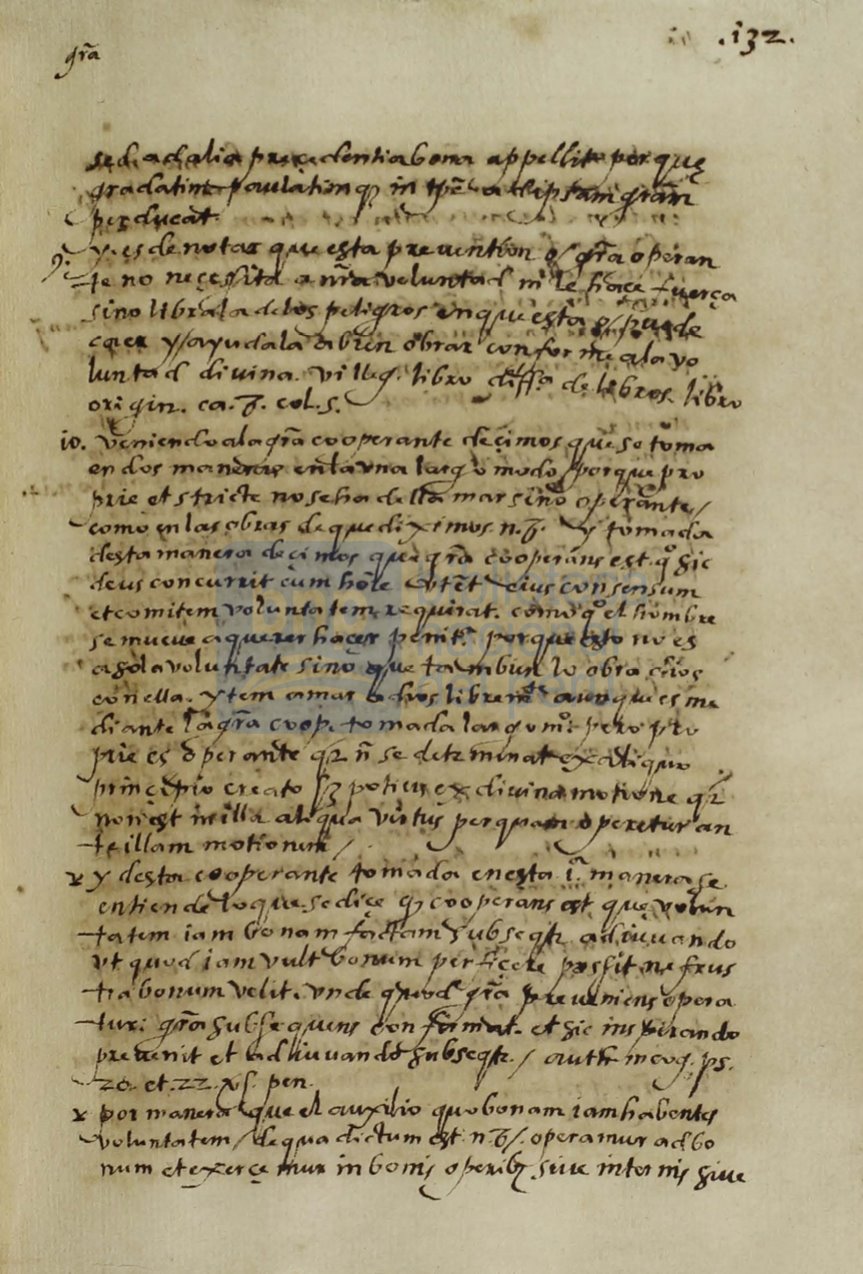 gr̃a
.132.
sed ad alia precedentia bona appellit
gradatim paulatimq; in
perducat
9. y es de notar que esta prevention o gr̃a operan
te no necessita a nr̃a voluntad ni le haçe fuerça
sino librala de los peligros en que esta o puede
caer y ayudala a bien obrar conforme a la vo
luntad divina. villeg. libro diffa de libros libro
origin. ca. 7. col. 5.
10. veniendo a la gr̃a cooperante deçimos que se toma
en dos maneras en la vna largo modo porque pro
prie et stricte no se ha de llamar sino operante /
como en las obras de que diximos n. 7. y tomada
desta manera deçimos que gr̃a cooperans est qua sic
deus concurrit cum hoĩe eius consensum
et comitem voluntatem requirat. como q̃ el hombre
se mueve a querer haçer penit.ª porque esto no es
a sola voluntate sino que tambien lo obra dios
con ella. ytem amar a dios librem.te aunque es me
diante la gr̃a coope. tomada largo mo: pero pro
prie es operante q2 ñ se determinat ex aliquo
prinçipio creato s3 potius ex divina motione q2
non est in illa aliqua virtus per quam operetur an
te illam motionem /
y desta cooperante tomada en esta i.ª manera se
entiende lo que se diçe q; cooperans est que volun
tatem iam bonam factam subseqr̃ adiuuando
vt quod iam vult bonum perfiçere possit ne frus
tra bonum velit. vnde quod gr̃a preueniens opera
tur: gr̃a subsequens confirmat. et sic inspirando
prevenit et adiuuando subseqr̃. / auth in cog. ps.
20. et. 22. xs. pen.
por manera que el auxilio quo bonam iam habentes
voluntatem / de qua dictum est n. 7/. operamur ad bo
num et exerçemur in bonis operib; siue internis siue